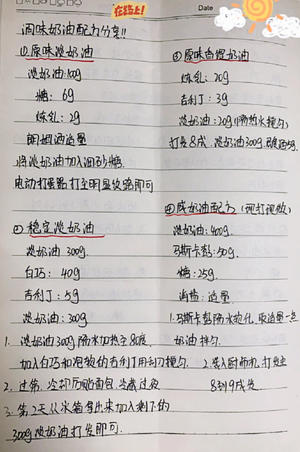 在路上!
Date
调味奶油配方分享!!
①原味淡奶油
淡奶油:100g
糖: 6g
炼乳: 2g
朗姆酒适量
将淡奶油加入细砂糖.
电动打蛋器打至明显纹路即可
②稳定淡奶油
淡奶油 300g
白巧: 40g
吉利丁: 5g
淡奶油: 300g
1. 淡奶油300g隔水加热至80度
加入白巧和泡软的吉利丁用刮刀搅匀.
2. 过筛. 冷却后贴面包 冷藏过夜
3. 第2天从冰箱拿出来加入剩下的
300g淡奶油打发即可.
③原味自提奶油
炼乳: 20g
吉利丁: 3g
淡奶油: 20g(隔热水搅匀)
打发8成. 淡奶油300g
④咸奶油配方(现打现做)
淡奶油: 400g
马斯卡彭: 50g
糖: 25g
海盐: 适量
1.马斯卡彭隔水软化. 取适量一点
奶油拌匀.
2. 装入厨师机. 打发至
8到9成发